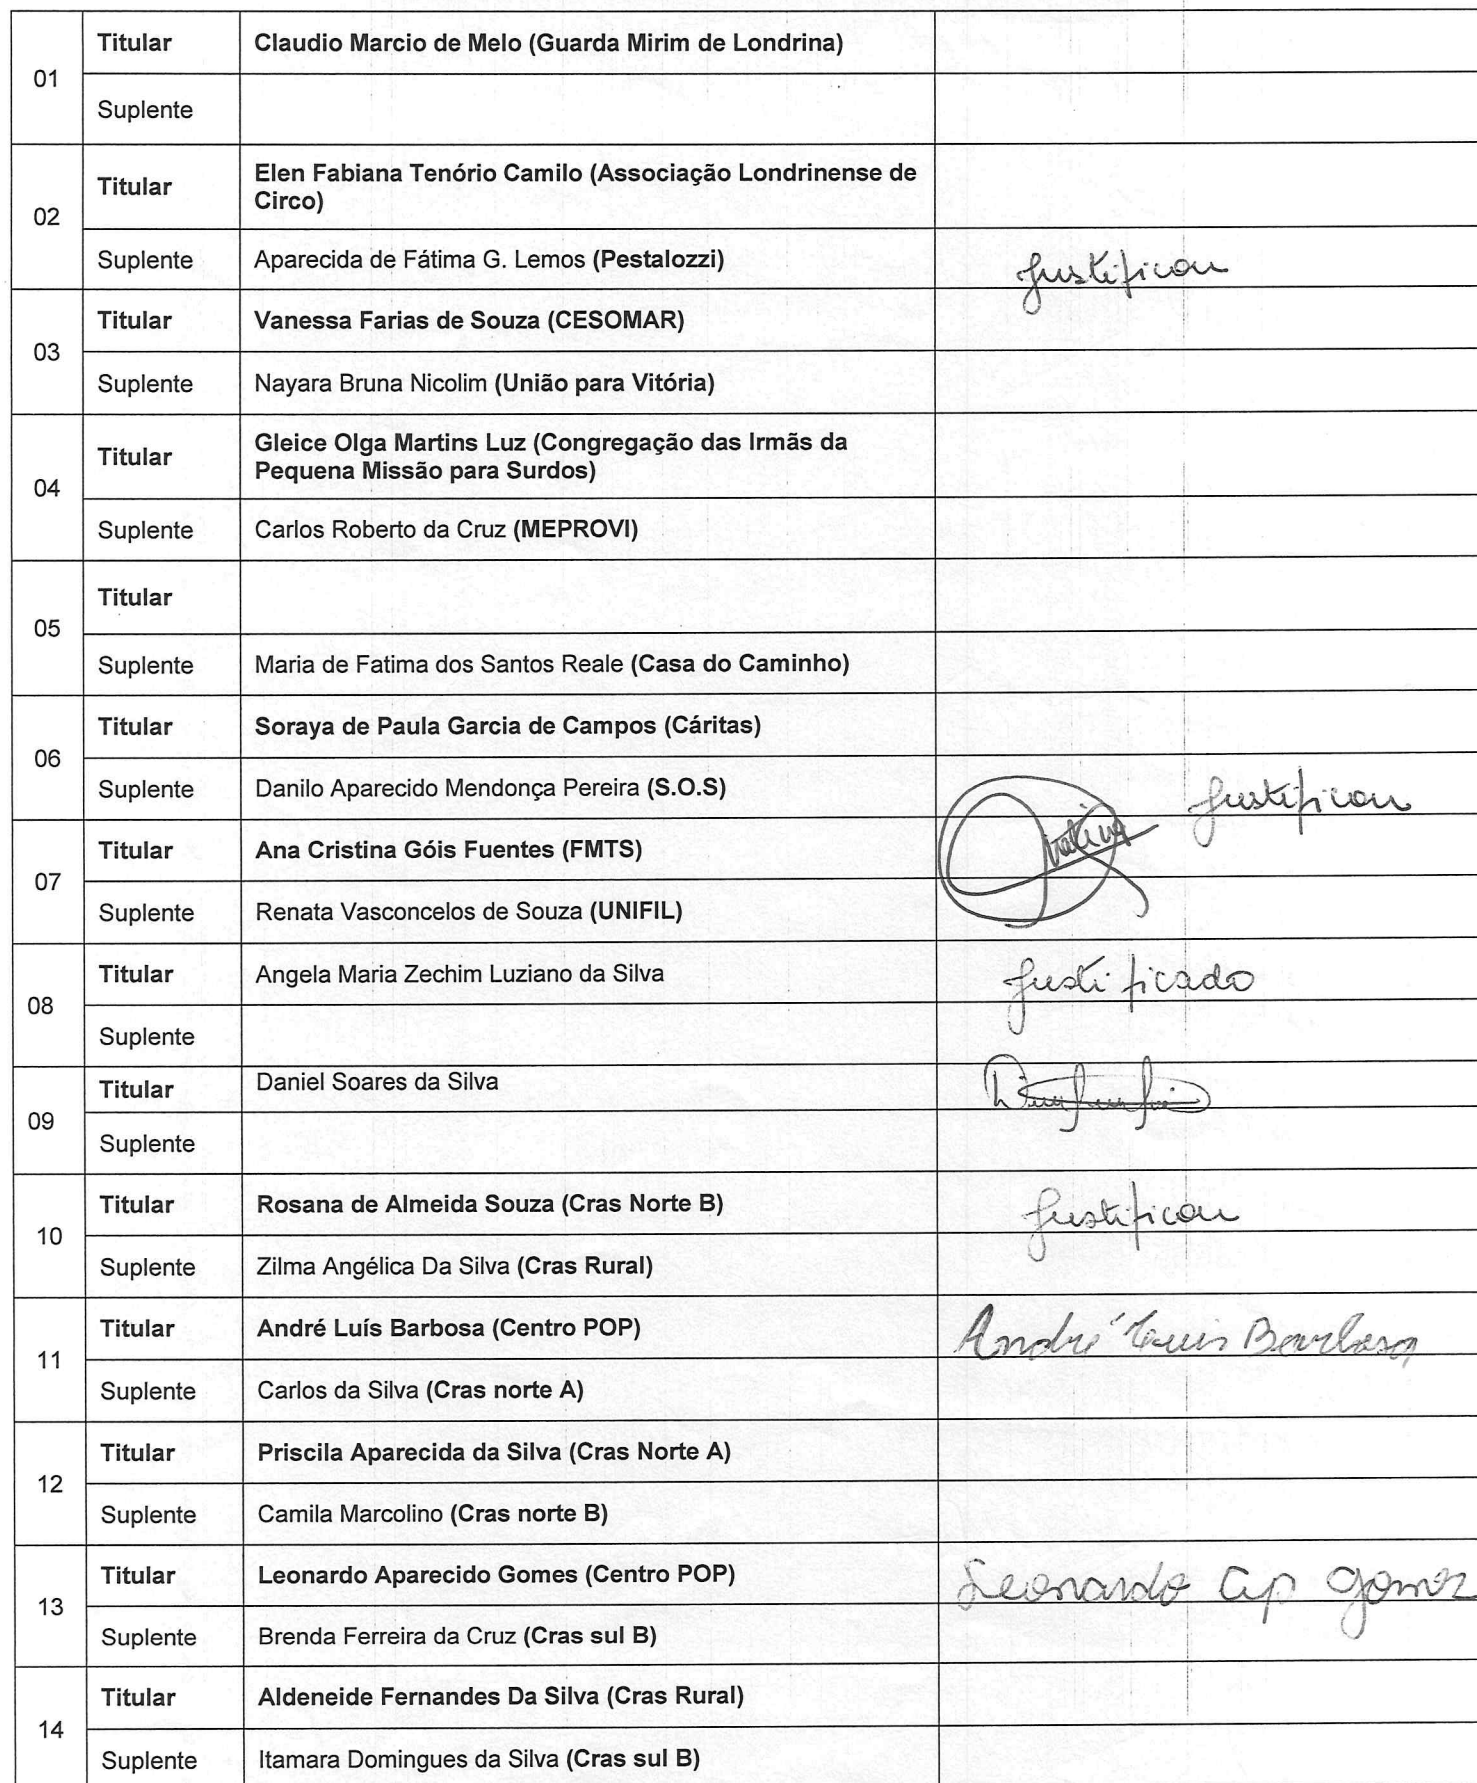 01
Titular Claudio Marcio de Melo (Guarda Mirim de Londrina)
Suplente
02
Titular Elen Fabiana Tenório Camilo (Associação Londrinense de
Circo)
Suplente Aparecida de Fátima G. Lemos (Pestalozzi) Justificou
03
Titular Vanessa Farias de Souza (CESOMAR)
Suplente Nayara Bruna Nicolim (União para Vitória)
04
Titular Gleice Olga Martins Luz (Congregação das Irmãs da
Pequena Missão para Surdos)
Suplente Carlos Roberto da Cruz (MEPROVI)
05
Titular
Suplente Maria de Fatima dos Santos Reale (Casa do Caminho)
06
Titular Soraya de Paula Garcia de Campos (Cáritas)
Suplente Danilo Aparecido Mendonça Pereira (S.O.S) Justificou
07
Titular Ana Cristina Góis Fuentes (FMTS)
Suplente Renata Vasconcelos de Souza (UNIFIL)
08
Titular Angela Maria Zechim Luziano da Silva Justificado
Suplente
09
Titular Daniel Soares da Silva
Suplente
10
Titular Rosana de Almeida Souza (Cras Norte B) Justificou
Suplente Zilma Angélica Da Silva (Cras Rural)
11
Titular André Luís Barbosa (Centro POP) André Luis Barbosa
Suplente Carlos da Silva (Cras norte A)
12
Titular Priscila Aparecida da Silva (Cras Norte A)
Suplente Camila Marcolino (Cras norte B)
13
Titular Leonardo Aparecido Gomes (Centro POP) Leonardo Ap Gomes
Suplente Brenda Ferreira da Cruz (Cras sul B)
14
Titular Aldeneide Fernandes Da Silva (Cras Rural)
Suplente Itamara Domingues da Silva (Cras sul B)